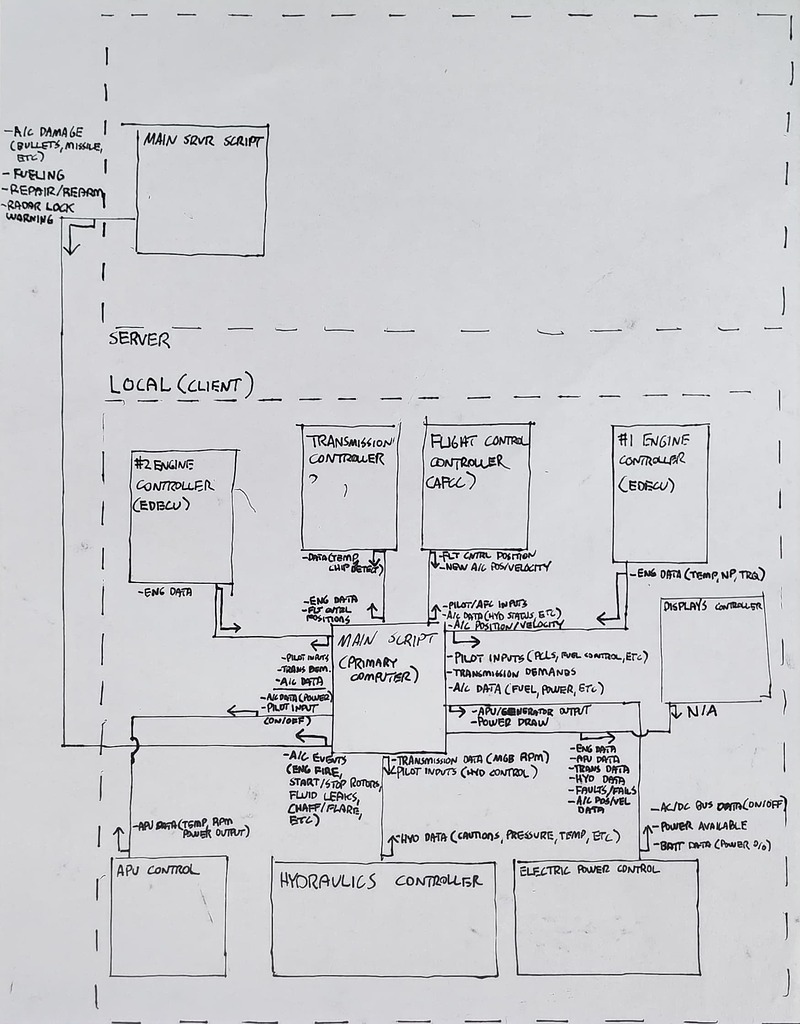 -A/C DAMAGE
(BULLETS, MISSILE,
ETC)
- FUELING
- REPAIR/REARM
-RADAR LOCK
WARNING
MAIN SRVR SCRIPT
SERVER
LOCAL (CLIENT)
#2 ENGINE
CONTROLLER
(EDECU)
-ENG DATA
TRANSMISSION
CONTROLLER
?
-DATA (TEMP,
CHIP DETECT)
-ENG DATA
- FLT CNTRL
POSITIONS
FLIGHT CONTROL
CONTROLLER
(AFCC)
-FLT CNTRL POSITION
-NEW A/C POS/VELOCITY
-PILOT/AFC INPUTS
-A/C DATA (HYD STATUS, ETC)
-A/C POSITION/VELOCITY
#1 ENGINE
CONTROLLER
(EDECU)
-ENG DATA (TEMP, NP, TRQ)
DISPLAYS CONTROLLER
N/A
MAIN SCRIPT
(PRIMARY
COMPUTER)
-PILOT INPUTS
-TRANS DEM.
-A/C DATA
-A/C DATA (POWER)
-PILOT INPUT
(ON/OFF)
- PILOT INPUTS (PCLS, FUEL CONTROL, ETC)
-TRANSMISSION DEMANDS
- A/C DATA (FUEL, POWER, ETC)
- APU/GENERATOR OUTPUT
- POWER DRAW
-A/C EVENTS
(ENG FIRE,
START/STOP ROTORS,
FLUID LEAKS,
CHAFF/FLARE,
ETC)
-TRANSMISSION DATA (MGB RPM)
PILOT INPUTS (HYD CONTROL)
- ENG DATA
- APU DATA
- TRANS DATA
- HYD DATA
- FAULTS/FAILS
- A/C POS/VEL
DATA
-APU DATA (TEMP, RPM
POWER OUTPUT)
HYD DATA (CAUTIONS, PRESSURE, TEMP, ETC)
-AC/DC BUS DATA (ON/OFF)
- POWER AVAILABLE
- BATT DATA (POWER %)
APU CONTROL
HYDRAULICS CONTROLLER
ELECTRIC POWER CONTROL